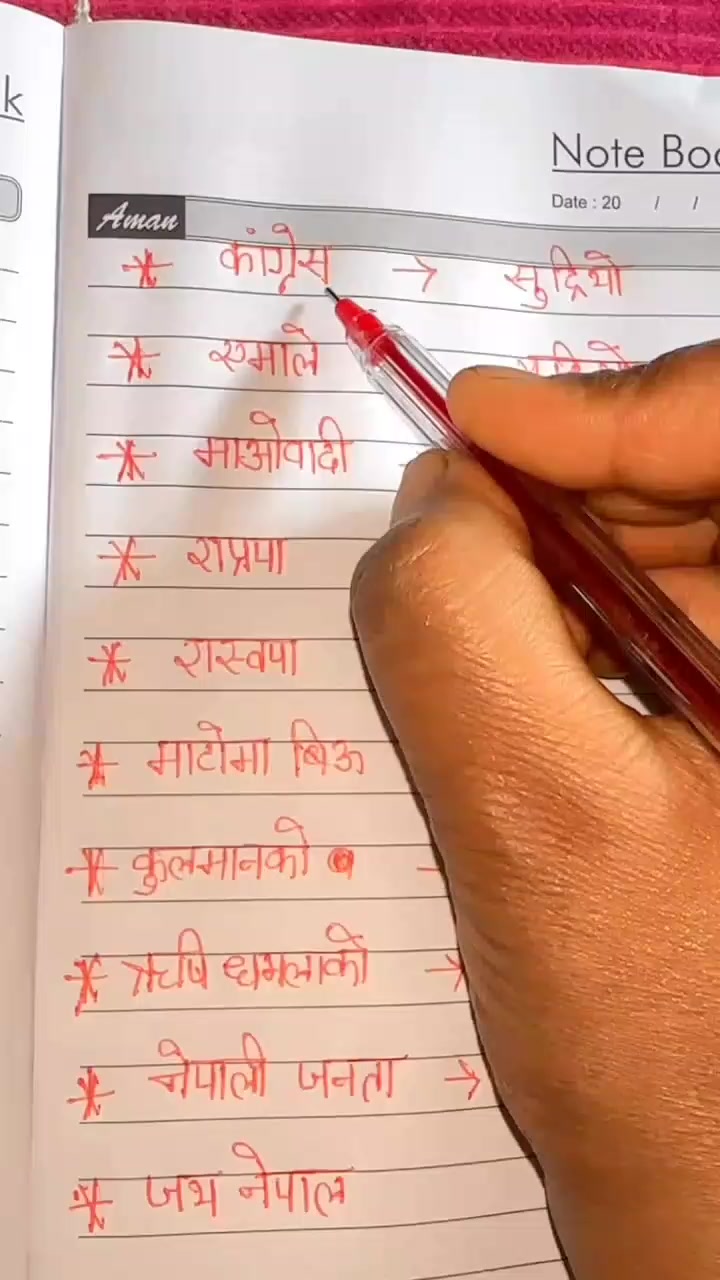 k
Note Boo
Date : 20 / /
Aman
* कांग्रेस → सुद्रियो
* एमाले
* माओवादी
* राप्रपा
* रास्वपा
* माटोमा बिऊ
* कुलमानको
* ऋषि धमलाको →
* नेपाली जनता →
* जय नेपाल